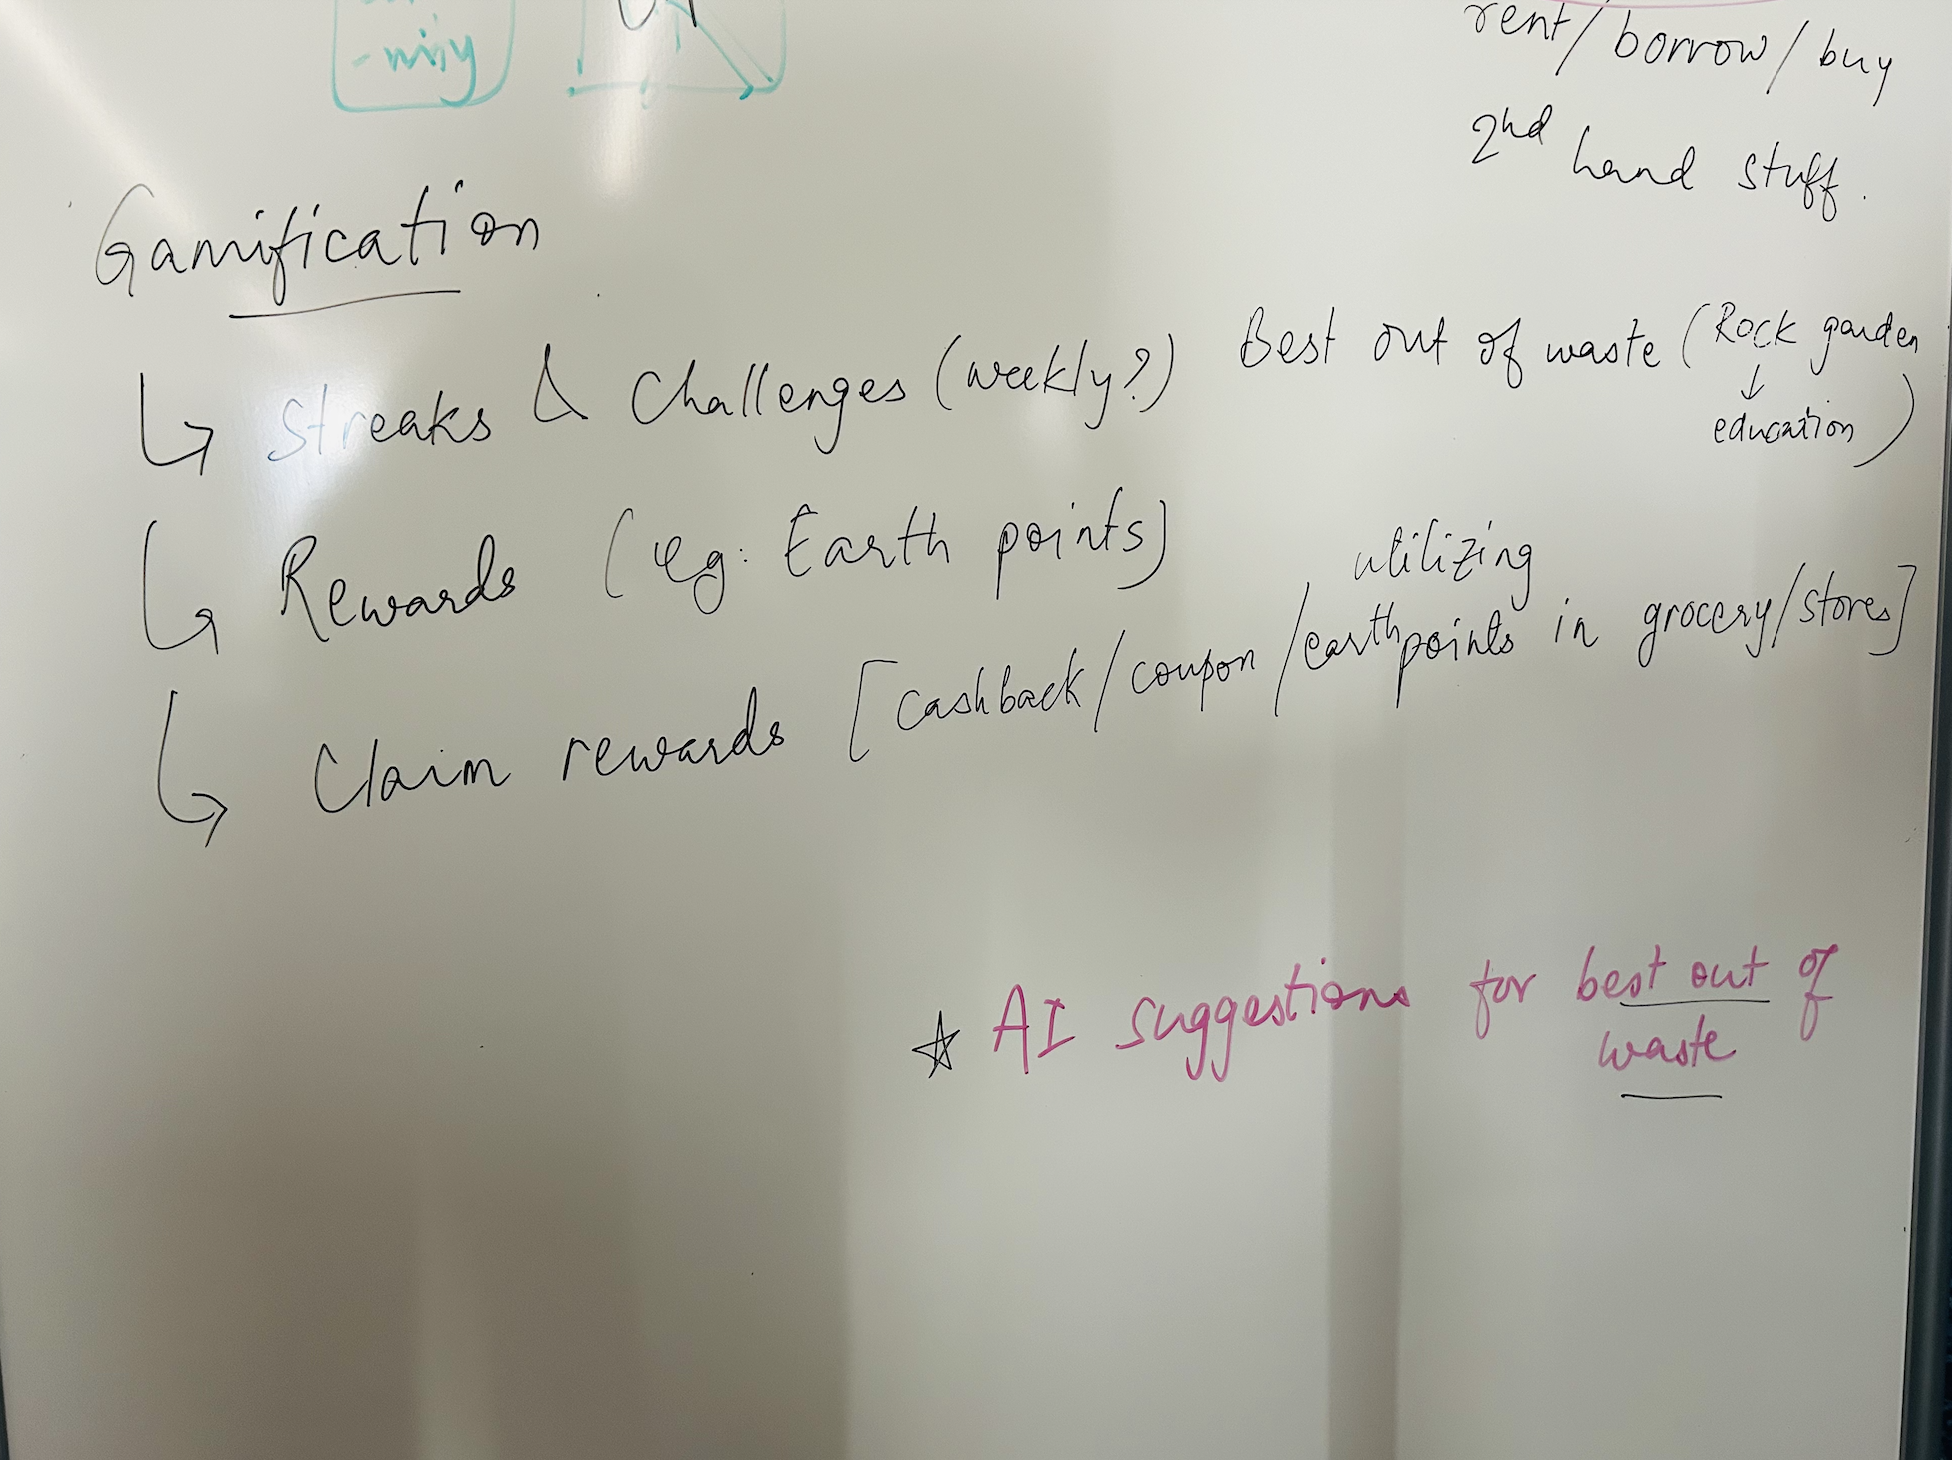 rent/borrow/buy
2nd hand stuff.
Gamification
↳ Streaks & Challenges (weekly?)
Best out of waste (Rock garden
↓
education)
↳ Rewards (eg: Earth points)
↳ Claim rewards [cashback/coupon/utilizing earthpoints in grocery/stores]
☆ AI suggestions for best out of
waste